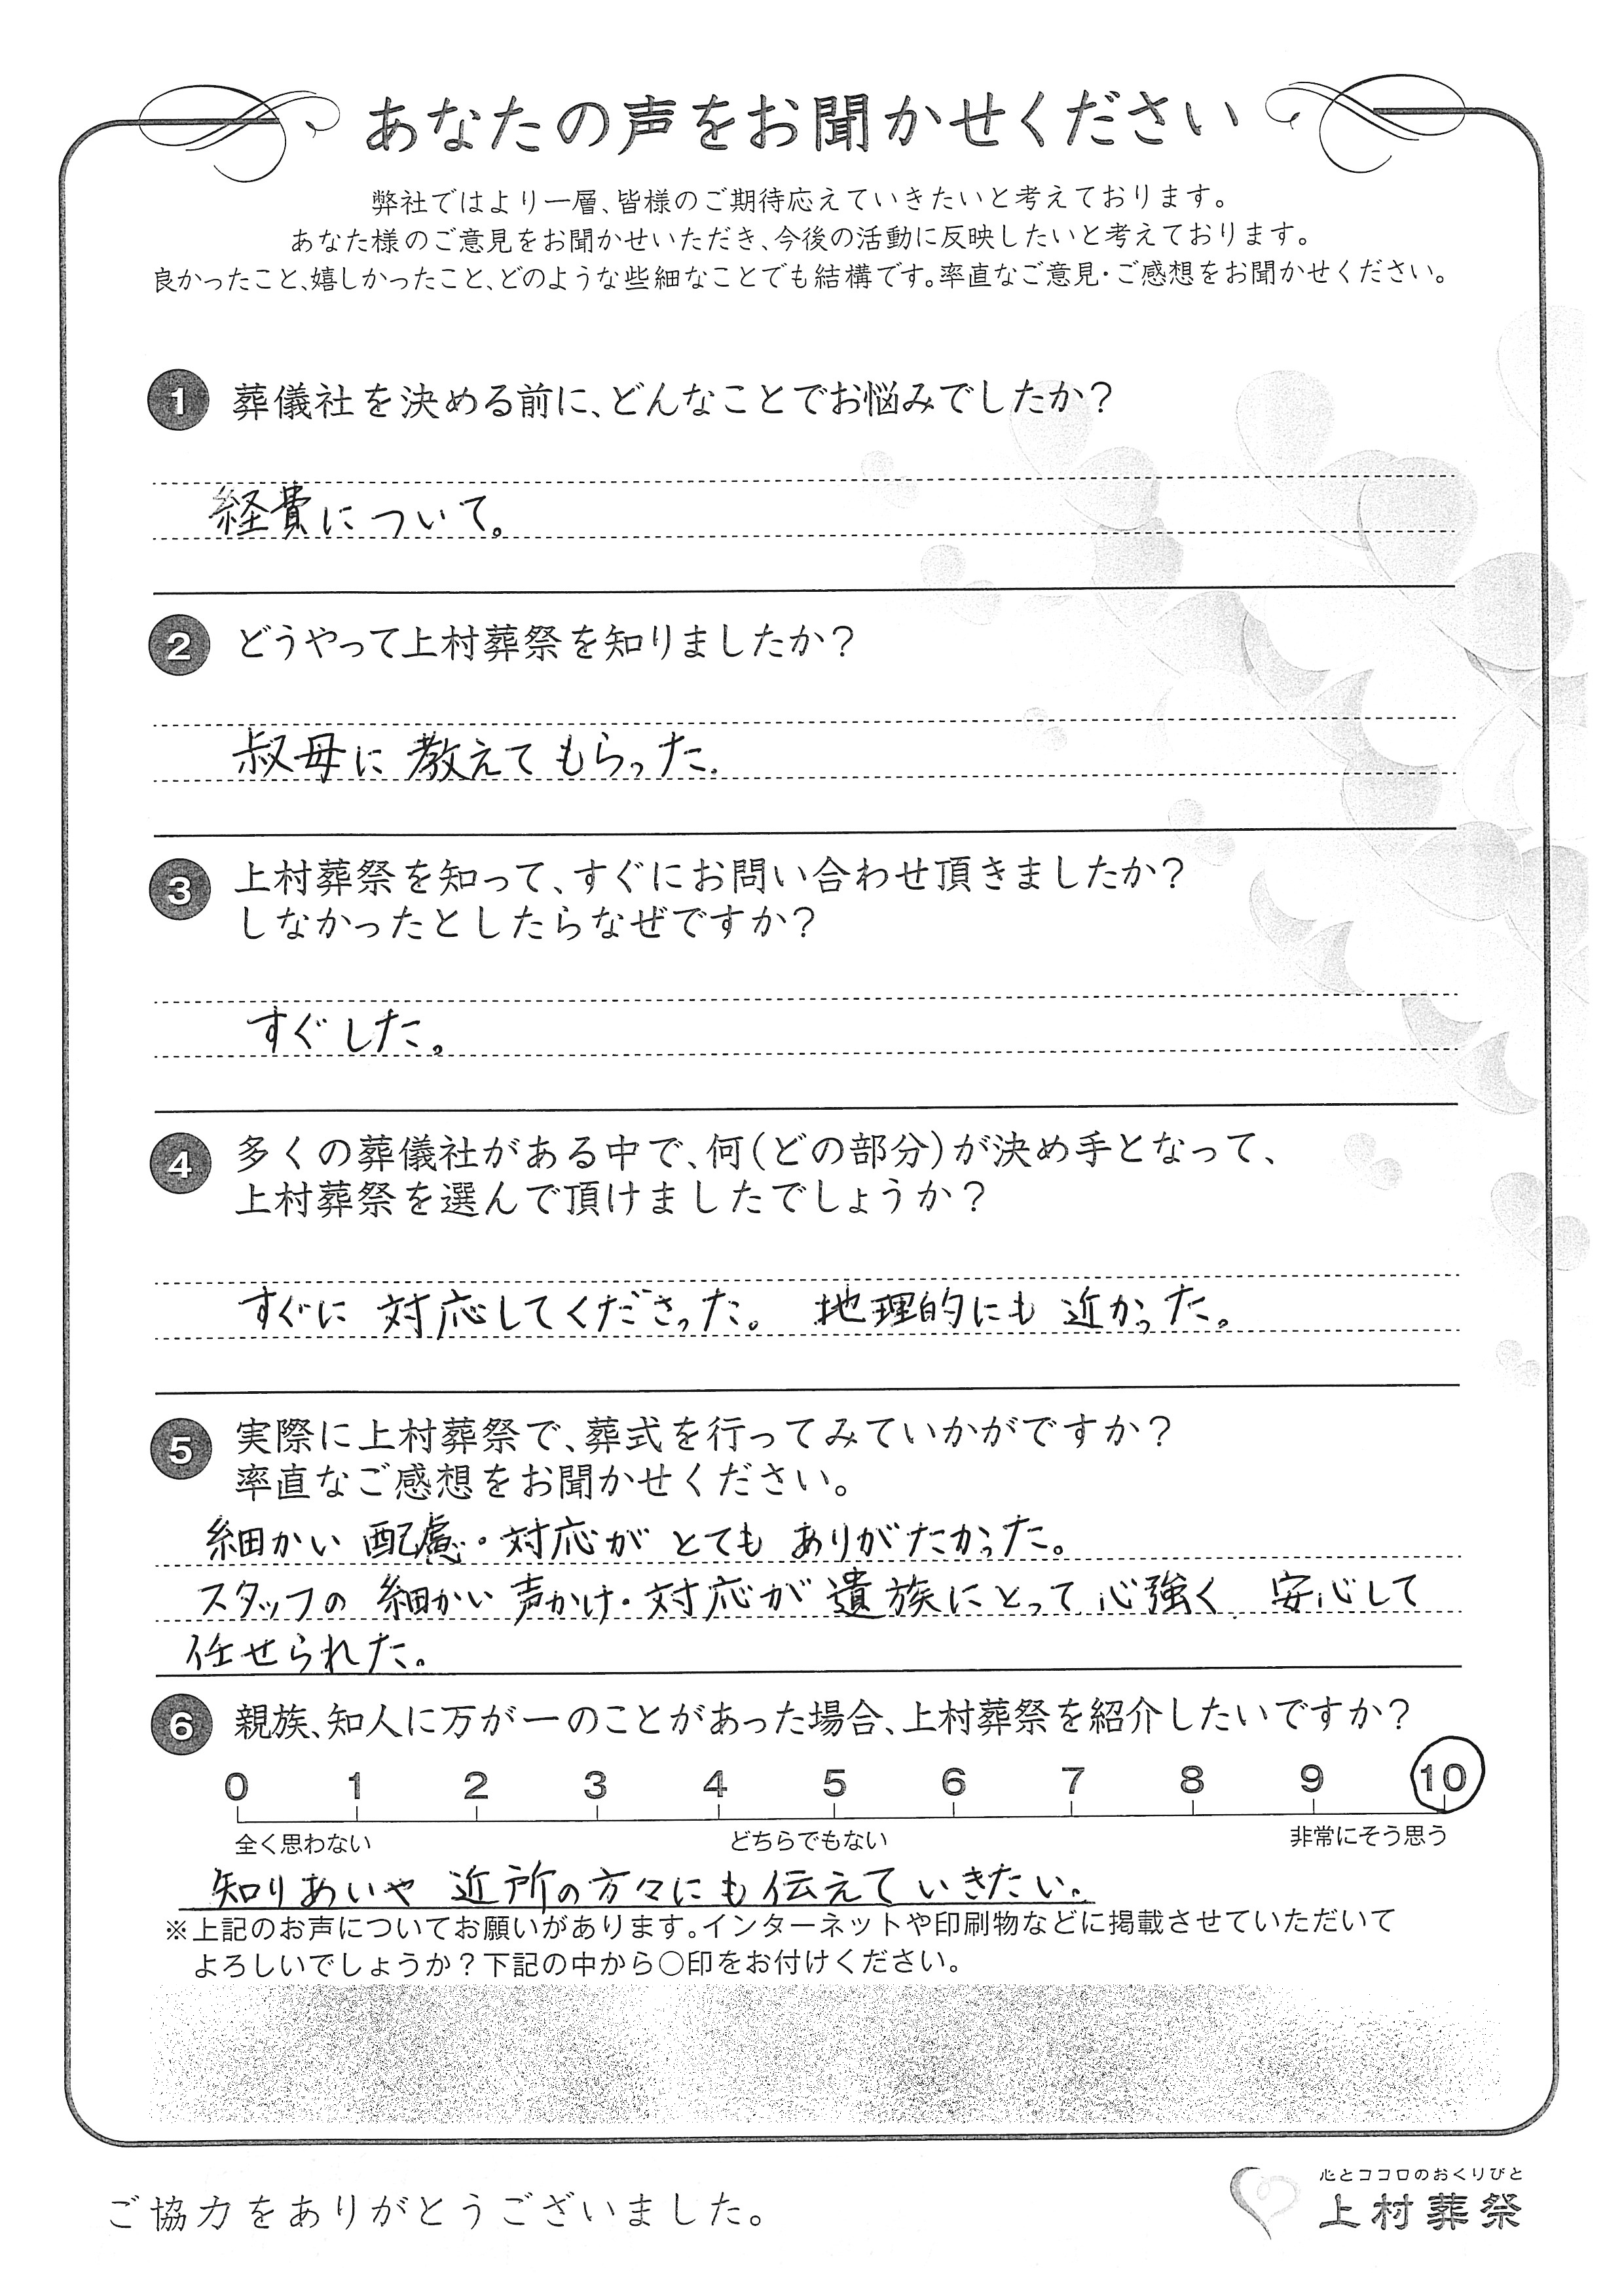 あなたの声をお聞かせください
弊社ではより一層、皆様のご期待応えていきたいと考えております。
あなた様のご意見をお聞かせいただき、今後の活動に反映したいと考えております。
良かったこと、嬉しかったこと、どのような些細なことでも結構です。率直なご意見・ご感想をお聞かせください。
1 葬儀社を決める前に、どんなことでお悩みでしたか?
経費について。
2 どうやって上村葬祭を知りましたか?
叔母に教えてもらった.
3 上村葬祭を知って、すぐにお問い合わせ頂きましたか?
しなかったとしたらなぜですか?
すぐした。
4 多くの葬儀社がある中で、何(どの部分)が決め手となって、
上村葬祭を選んで頂けましたでしょうか?
すぐに対応してくださった。 地理的にも近かった。
5 実際に上村葬祭で、葬式を行ってみていかがですか?
率直なご感想をお聞かせください。
細かい配慮・対応がとてもありがたかった。
スタッフの細かい声かけ・対応が遺族にとって心強く、安心して
任せられた。
6 親族、知人に万が一のことがあった場合、上村葬祭を紹介したいですか?
0 1 2 3 4 5 6 7 8 9 10
全く思わない どちらでもない 非常にそう思う
知りあいや近所の方々にも伝えていきたい。
※上記のお声についてお願いがあります。インターネットや印刷物などに掲載させていただいて
よろしいでしょうか?下記の中から○印をお付けください。
心とココロのおくりびと
ご協力をありがとうございました。 上村葬祭